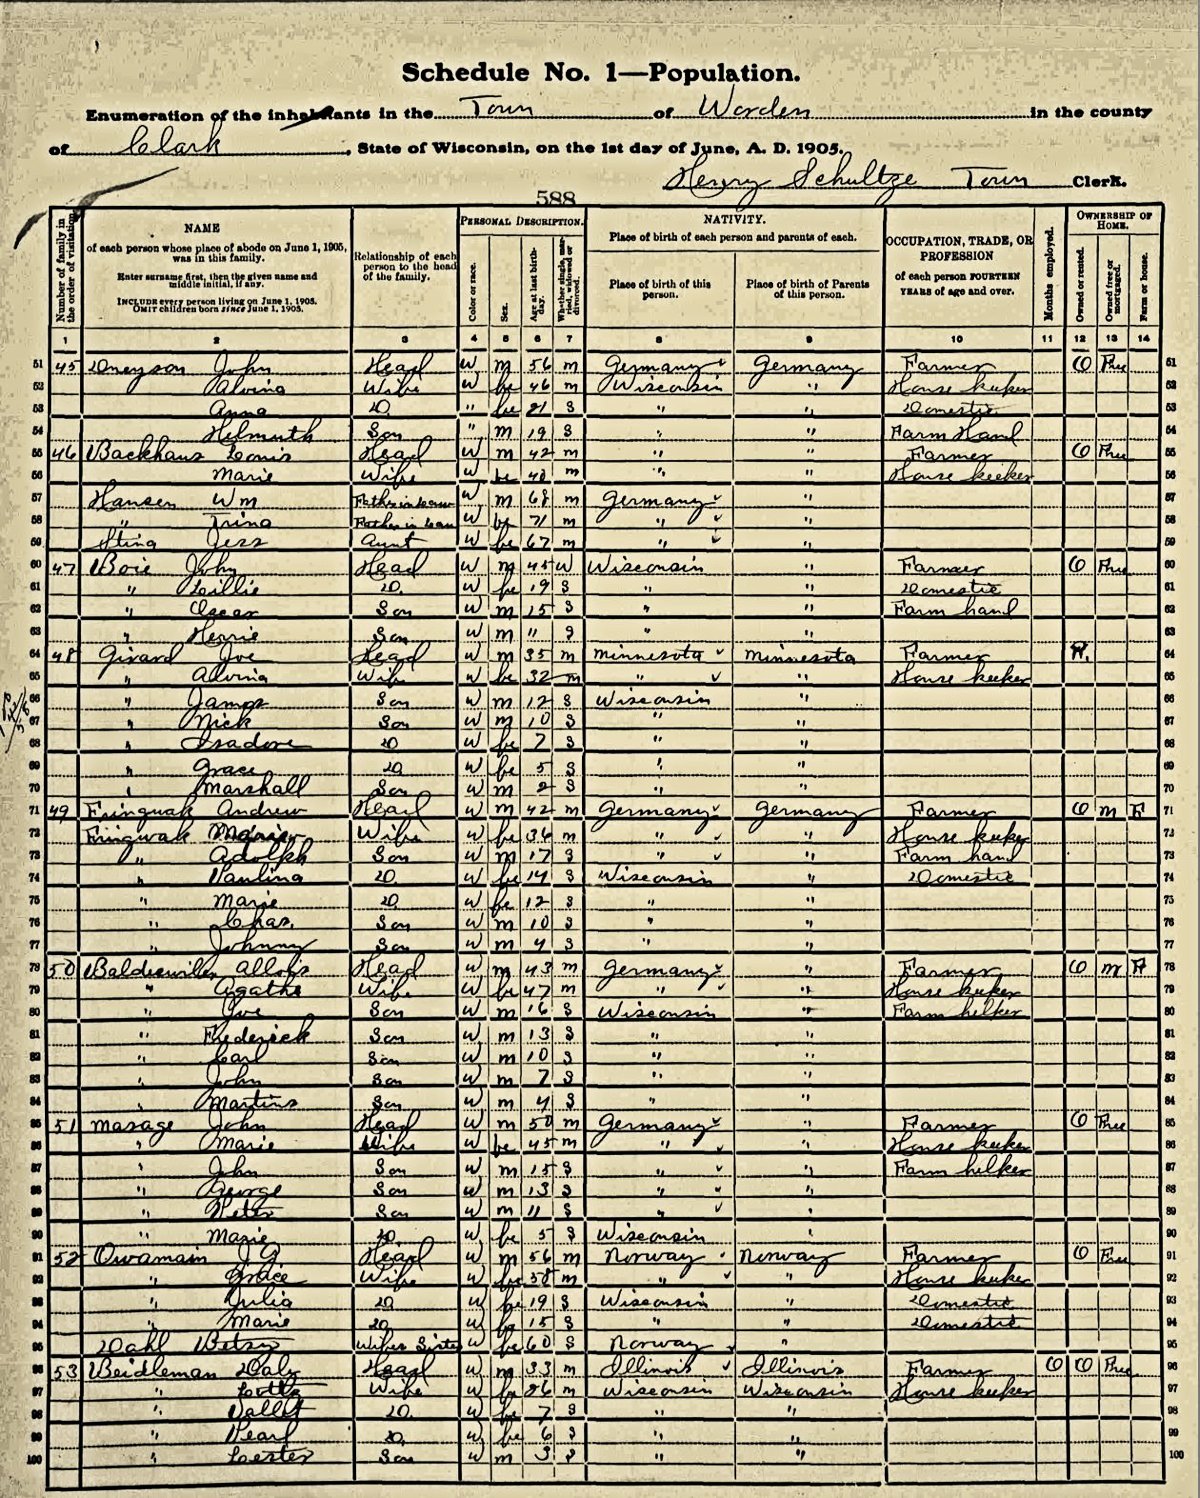 Schedule No. 1—Population.
Enumeration of the inhabitants in the Town of Worden in the county
of Clark, State of Wisconsin, on the 1st day of June, A. D. 1905.
Henry Schultze Town Clerk.
588
Number of family in the order of visitation.
NAME
of each person whose place of abode on June 1, 1905, was in this family.
Enter surname first, then the given name and middle initial, if any.
INCLUDE every person living on June 1, 1905.
OMIT children born since June 1, 1905.
Relationship of each person to the head of the family.
PERSONAL DESCRIPTION.
Color or race.
Sex.
Age at last birthday.
Whether single, married, widowed or divorced.
NATIVITY.
Place of birth of each person and parents of each.
Place of birth of this person.
Place of birth of Parents of this person.
OCCUPATION, TRADE, OR PROFESSION
of each person FOURTEEN YEARS of age and over.
Months employed.
OWNERSHIP OF HOME.
Owned or rented.
Owned free or mortgaged.
Farm or house.
1 2 3 4 5 6 7 8 9 10 11 12 13 14
51 45 John Head W m 56 m Germany Germany Farmer O Free 51
52 Alvina Wife W fe 46 m Wisconsin " House keeker 52
53 Anna D. " fe 21 S " " Domestic 53
54 Helmuth Son " m 19 S " " Farm Hand 54
55 46 Backhaus Louis Head W m 42 m " " Farmer O Free 55
56 Marie Wife W fe m " " House keeker 56
57 Hansen Wm Father in Law W m 68 m Germany " 57
58 " Trina Father in Law W fe 71 m " " 58
59 Sting Jess Aunt W fe 67 m " " 59
60 47 Boie John Head W m 45 W Wisconsin " Farmer O Free 60
61 " Lillie D. W fe 19 S " " Domestic 61
62 " Oscar Son W m 15 S " " Farm hand 62
63 " Son W m 11 S " " 63
64 48 Girard Joe Head W m 35 m Minnesota Minnesota Farmer R. 64
65 " Alvina Wife W fe 32 m " " House keeker 65
66 " James Son W m 12 S Wisconsin " 66
67 " Nick Son W m 10 S " " 67
68 " Isadore D W fe 7 S " " 68
69 " Grace D W fe 5 S " " 69
70 " Marshall Son W m 2 S " " 70
71 49 Fringuak Andrew Head W m 42 m Germany Germany Farmer O m F 71
72 Fringwak Marie Wife W fe 36 m " " House keeker 72
73 " Adolph Son W m 17 S " " Farm hand 73
74 " Paulina D. W fe 14 S Wisconsin " Domestic 74
75 " Marie D W fe 12 S " " 75
76 " Chas. Son W m 10 S " " 76
77 " Johnny Son W m 4 S " " 77
78 50 Baldeswiler Allois Head W m 43 m Germany " Farmer O m F 78
79 " Agathe Wife W fe 47 m " " House keeker 79
80 " Joe Son W m 16 S Wisconsin " Farm helker 80
81 " Frederick Son W m 13 S " " 81
82 " Carl Son W m 10 S " " 82
83 " John Son W m 7 S " " 83
84 " Martins Son W m 4 S " " 84
85 51 Masage John Head W m 50 m Germany " Farmer O Free 85
86 " Marie Wife W fe 45 m " " House keeker 86
87 " John Son W m 15 S " " Farm helker 87
88 " George Son W m 13 S " " 88
89 " Peter Son W m 11 S " " 89
90 " Marie D. W fe 5 S Wisconsin " 90
91 52 Owamain J G Head W m 56 m Norway Norway Farmer O Free 91
92 " Grace Wife W fe 58 m " " House keeker 92
93 " Julia D W fe 19 S Wisconsin " Domestic 93
94 " Marie D W fe 15 S " " Domestic 94
95 Dahl Betsy Wifes Sister W fe 60 S Norway " 95
96 53 Beidleman Head W m 33 m Illinois Illinois Farmer O O Free 96
97 " Lotta Wife W fe 26 m Wisconsin Wisconsin House keeker 97
98 " D. W fe 7 S " " 98
99 " Pearl D. W fe 6 S " " 99
100 " Lester Son W m 3 S " " 100